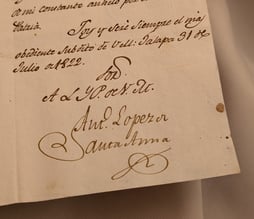 de mi constante anhelo por
Patria.
Soy y seré siempre el mas
obediente subdito de V.M. Jalapa 31 de
Julio de 1822.
A L. P. de V. M.
Antº. Lopez de
Santa Anna